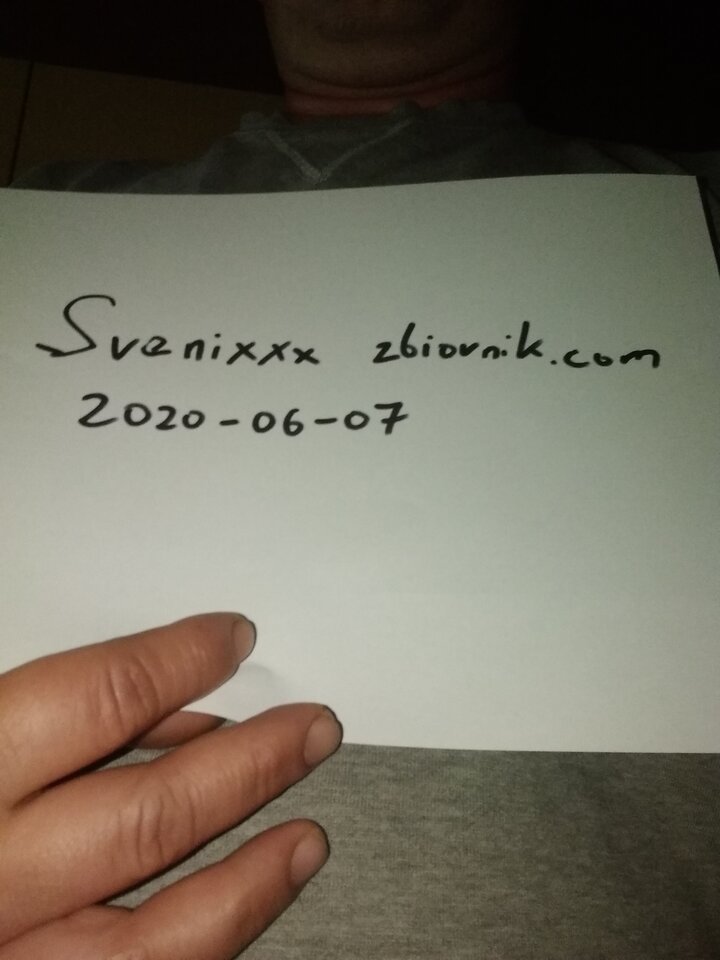 Svenixxx zbiornik.com
2020-06-07